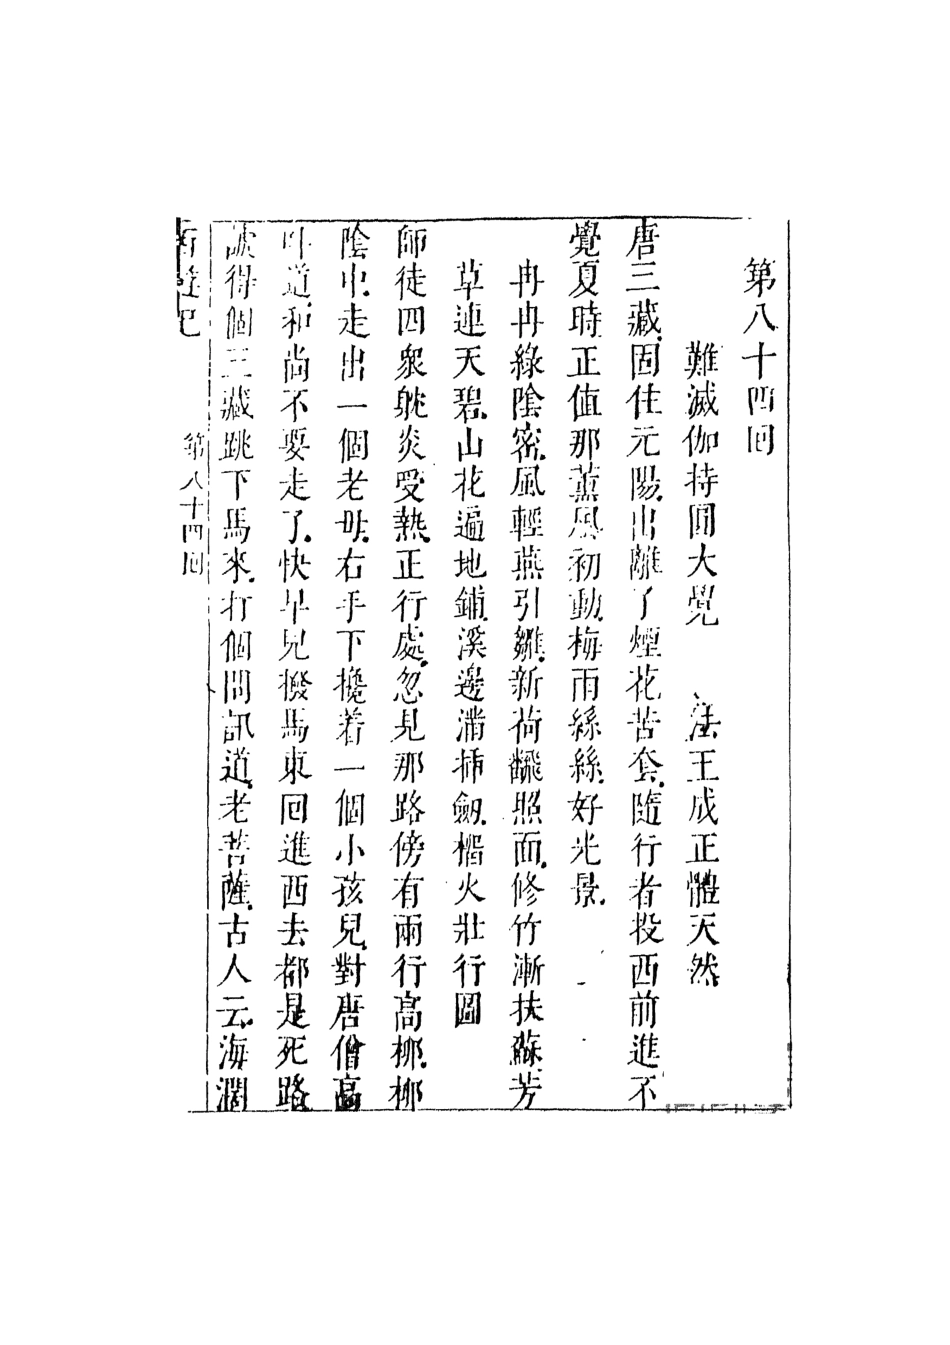 第八十四回
難滅伽持圓大覺　法王成正體天然
唐三藏固住元陽出離了煙花苦套隨行者投西前進不
覺夏時正值那薰風初動梅雨絲絲好光景
冉冉綠陰密風輕燕引雛新荷翻照面修竹漸扶蘇芳
草連天碧山花遍地鋪溪邊蒲插劍榴火壯行圖
師徒四衆躭炎受熱正行處忽見那路傍有兩行高柳柳
陰中走出一個老母右手下攙着一個小孩兒對唐僧高
叫道和尚不要走了快早兒撥馬東回進西去都是死路
諕得個三藏跳下馬來打個問訊道老菩薩古人云海濶
西遊記　第八十四回